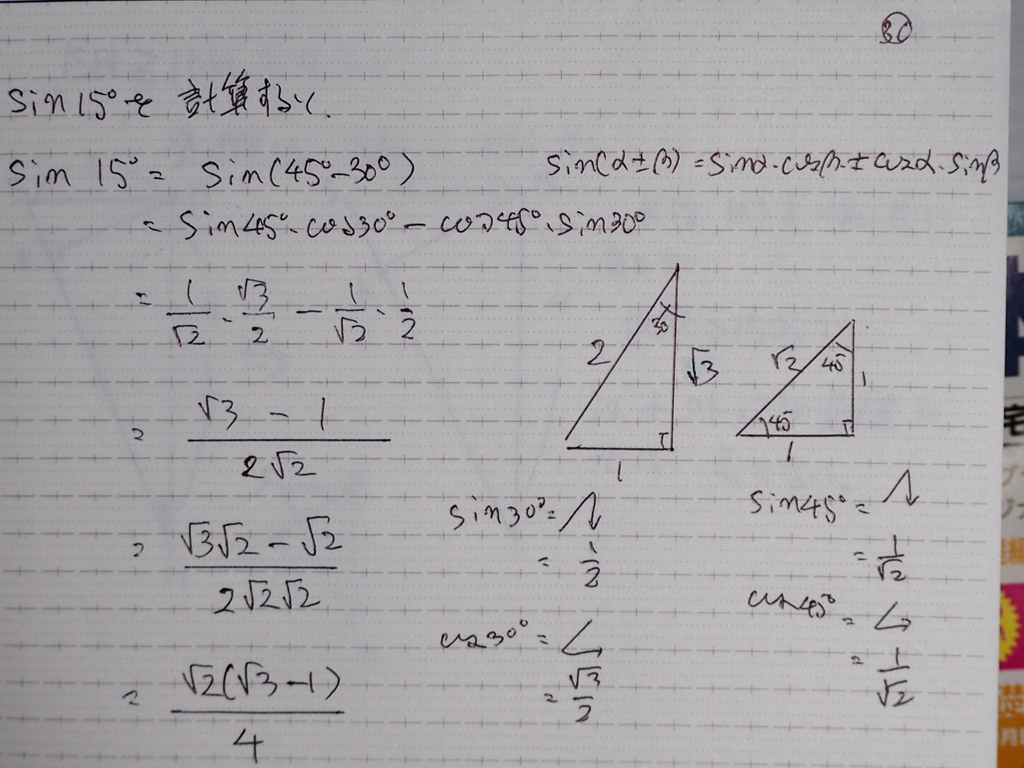 30
sin15°を計算せよ.
sin 15° = sin(45°-30°)
sin(α±β) = sinα・cosβ ± cosα・sinβ
= sin45°・cos30° - cos45°・sin30°
= 1/√2・√3/2 - 1/√2・1/2
= (√3 - 1)/(2√2)
= (√3√2 - √2)/(2√2√2)
= √2(√3-1)/4
30
2
√3
1
45
√2
1
45
1
sin30° =
= 1/2
cos30° =
= √3/2
sin45° =
= 1/√2
cos45° =
= 1/√2
宅